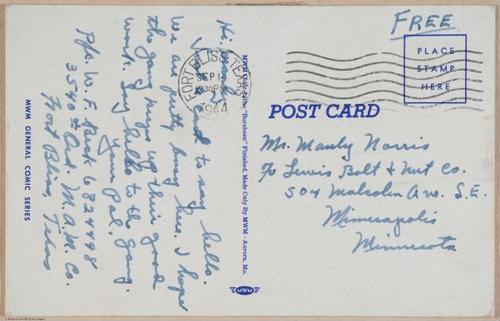 Hi:
Just a card to say hello.
We are pretty busy here. I hope
the gang keeps up their good
work. Say hello to the gang.
Your Pal.
Pfc. W. F. 6824498
3540th Ord. M.A.M. Co.
Fort Bliss, Texas
MWM GENERAL COMIC SERIES
FORT BLISS, TEXAS
SEP 14
1944
"Finished, Made Only By MWM - Aurora, Mo.
MWM
FREE
PLACE
STAMP
HERE
POST CARD
Mr. Manly Norris
℅ Lewis Bolt & Nut Co.
504 Malcolm Ave. S.E.
Minneapolis
Minnesota